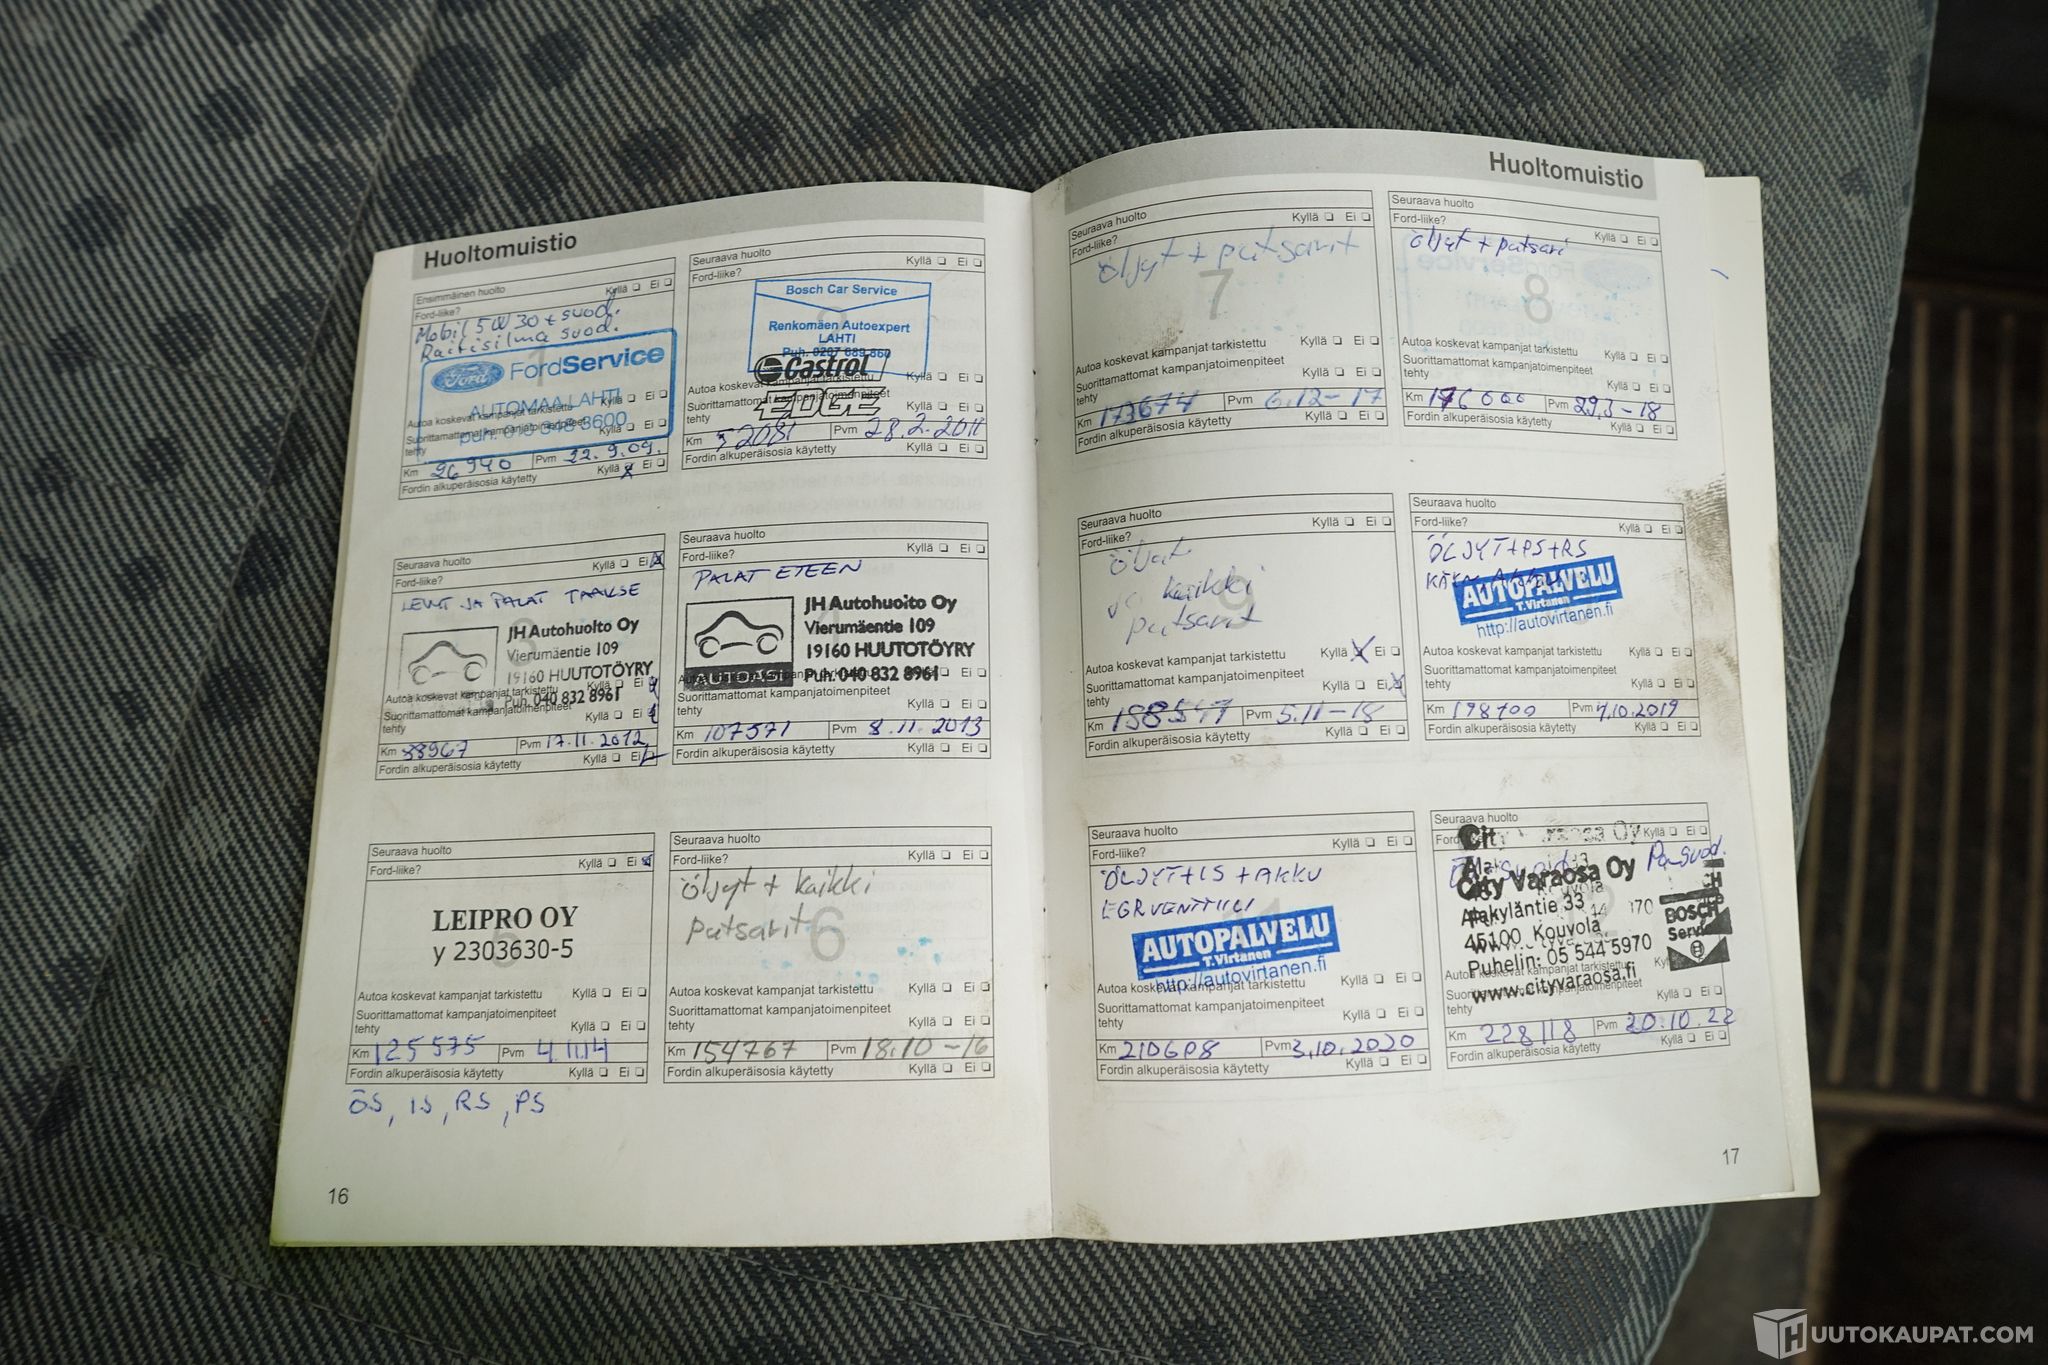 Huoltomuistio
Ensimmäinen huolto
Ford-liike? Kyllä Ei
Mobil 5W30 + suod.
Raitisilma suod.
1
Ford FordService
AUTOMAA LAHTI
Autoa koskevat kampanjat tarkistettu Kyllä Ei
Suorittamattomat kampanjatoimenpiteet
tehty Kyllä Ei
Km 26940 Pvm 22.9.09.
Fordin alkuperäisosia käytetty Kyllä Ei
Seuraava huolto
Ford-liike? Kyllä Ei
Bosch Car Service
Renkomäen Autoexpert
LAHTI
Puh. 0207 689 860
Castrol
EDGE
Autoa koskevat kampanjat tarkistettu Kyllä Ei
Suorittamattomat kampanjatoimenpiteet
tehty Kyllä Ei
Km 52081 Pvm 28.2.2011
Fordin alkuperäisosia käytetty Kyllä Ei
Seuraava huolto
Ford-liike? Kyllä Ei
LEVYT JA PALAT TAAKSE
JH Autohuolto Oy
Vierumäentie 109
19160 HUUTOTÖYRY
Puh. 040 832 8961
Autoa koskevat kampanjat tarkistettu Kyllä Ei
Suorittamattomat kampanjatoimenpiteet
tehty Kyllä Ei
Km 88967 Pvm 17.11.2012
Fordin alkuperäisosia käytetty Kyllä Ei
Seuraava huolto
Ford-liike? Kyllä Ei
PALAT ETEEN
JH Autohuolto Oy
Vierumäentie 109
19160 HUUTOTÖYRY
Puh. 040 832 8961
Autoa koskevat kampanjat tarkistettu Kyllä Ei
Suorittamattomat kampanjatoimenpiteet
tehty Kyllä Ei
Km 107571 Pvm 8.11.2013
Fordin alkuperäisosia käytetty Kyllä Ei
Seuraava huolto
Ford-liike? Kyllä Ei
LEIPRO OY
y 2303630-5
5
Autoa koskevat kampanjat tarkistettu Kyllä Ei
Suorittamattomat kampanjatoimenpiteet
tehty Kyllä Ei
Km 125575 Pvm 4.11.14
Fordin alkuperäisosia käytetty Kyllä Ei
ÖS, IS, RS, PS
Seuraava huolto
Ford-liike? Kyllä Ei
Öljyt + kaikki
putsarit
6
Autoa koskevat kampanjat tarkistettu Kyllä Ei
Suorittamattomat kampanjatoimenpiteet
tehty Kyllä Ei
Km 154767 Pvm 18.10-16
Fordin alkuperäisosia käytetty Kyllä Ei
16
Huoltomuistio
Seuraava huolto
Ford-liike? Kyllä Ei
Öljyt + putsarit
7
Autoa koskevat kampanjat tarkistettu Kyllä Ei
Suorittamattomat kampanjatoimenpiteet
tehty Kyllä Ei
Km 173674 Pvm 6.12-17
Fordin alkuperäisosia käytetty Kyllä Ei
Seuraava huolto
Ford-liike? Kyllä Ei
Öljyt + putsari
8
Autoa koskevat kampanjat tarkistettu Kyllä Ei
Suorittamattomat kampanjatoimenpiteet
tehty Kyllä Ei
Km 176000 Pvm 29.3-18
Fordin alkuperäisosia käytetty Kyllä Ei
Seuraava huolto
Ford-liike? Kyllä Ei
Öljyt
ja kaikki
putsarit
9
Autoa koskevat kampanjat tarkistettu Kyllä Ei
Suorittamattomat kampanjatoimenpiteet
tehty Kyllä Ei
Km 188547 Pvm 5.11-18
Fordin alkuperäisosia käytetty Kyllä Ei
Seuraava huolto
Ford-liike? Kyllä Ei
ÖLJYT+PS+RS
AUTOPALVELU
T.Virtanen
http://autovirtanen.fi
Autoa koskevat kampanjat tarkistettu Kyllä Ei
Suorittamattomat kampanjatoimenpiteet
tehty Kyllä Ei
Km 198700 Pvm 7.10.2019
Fordin alkuperäisosia käytetty Kyllä Ei
Seuraava huolto
Ford-liike? Kyllä Ei
ÖLJYT+IS + AKKU
EGRVENTTIILI
AUTOPALVELU
T.Virtanen
http://autovirtanen.fi
Autoa koskevat kampanjat tarkistettu Kyllä Ei
Suorittamattomat kampanjatoimenpiteet
tehty Kyllä Ei
Km 210608 Pvm 3.10.2020
Fordin alkuperäisosia käytetty Kyllä Ei
Seuraava huolto
Kyllä Ei
Pa suod.
City Varaosa Oy
Alakyläntie 33
45100 Kouvola
Puhelin: 05 544 5970
www.cityvaraosa.fi
BOSCH
Service
Autoa koskevat kampanjat tarkistettu
Suorittamattomat kampanjatoimenpiteet
tehty Kyllä Ei
Km 228118 Pvm 20.10.22
Fordin alkuperäisosia käytetty Kyllä Ei
17
HUUTOKAUPAT.COM